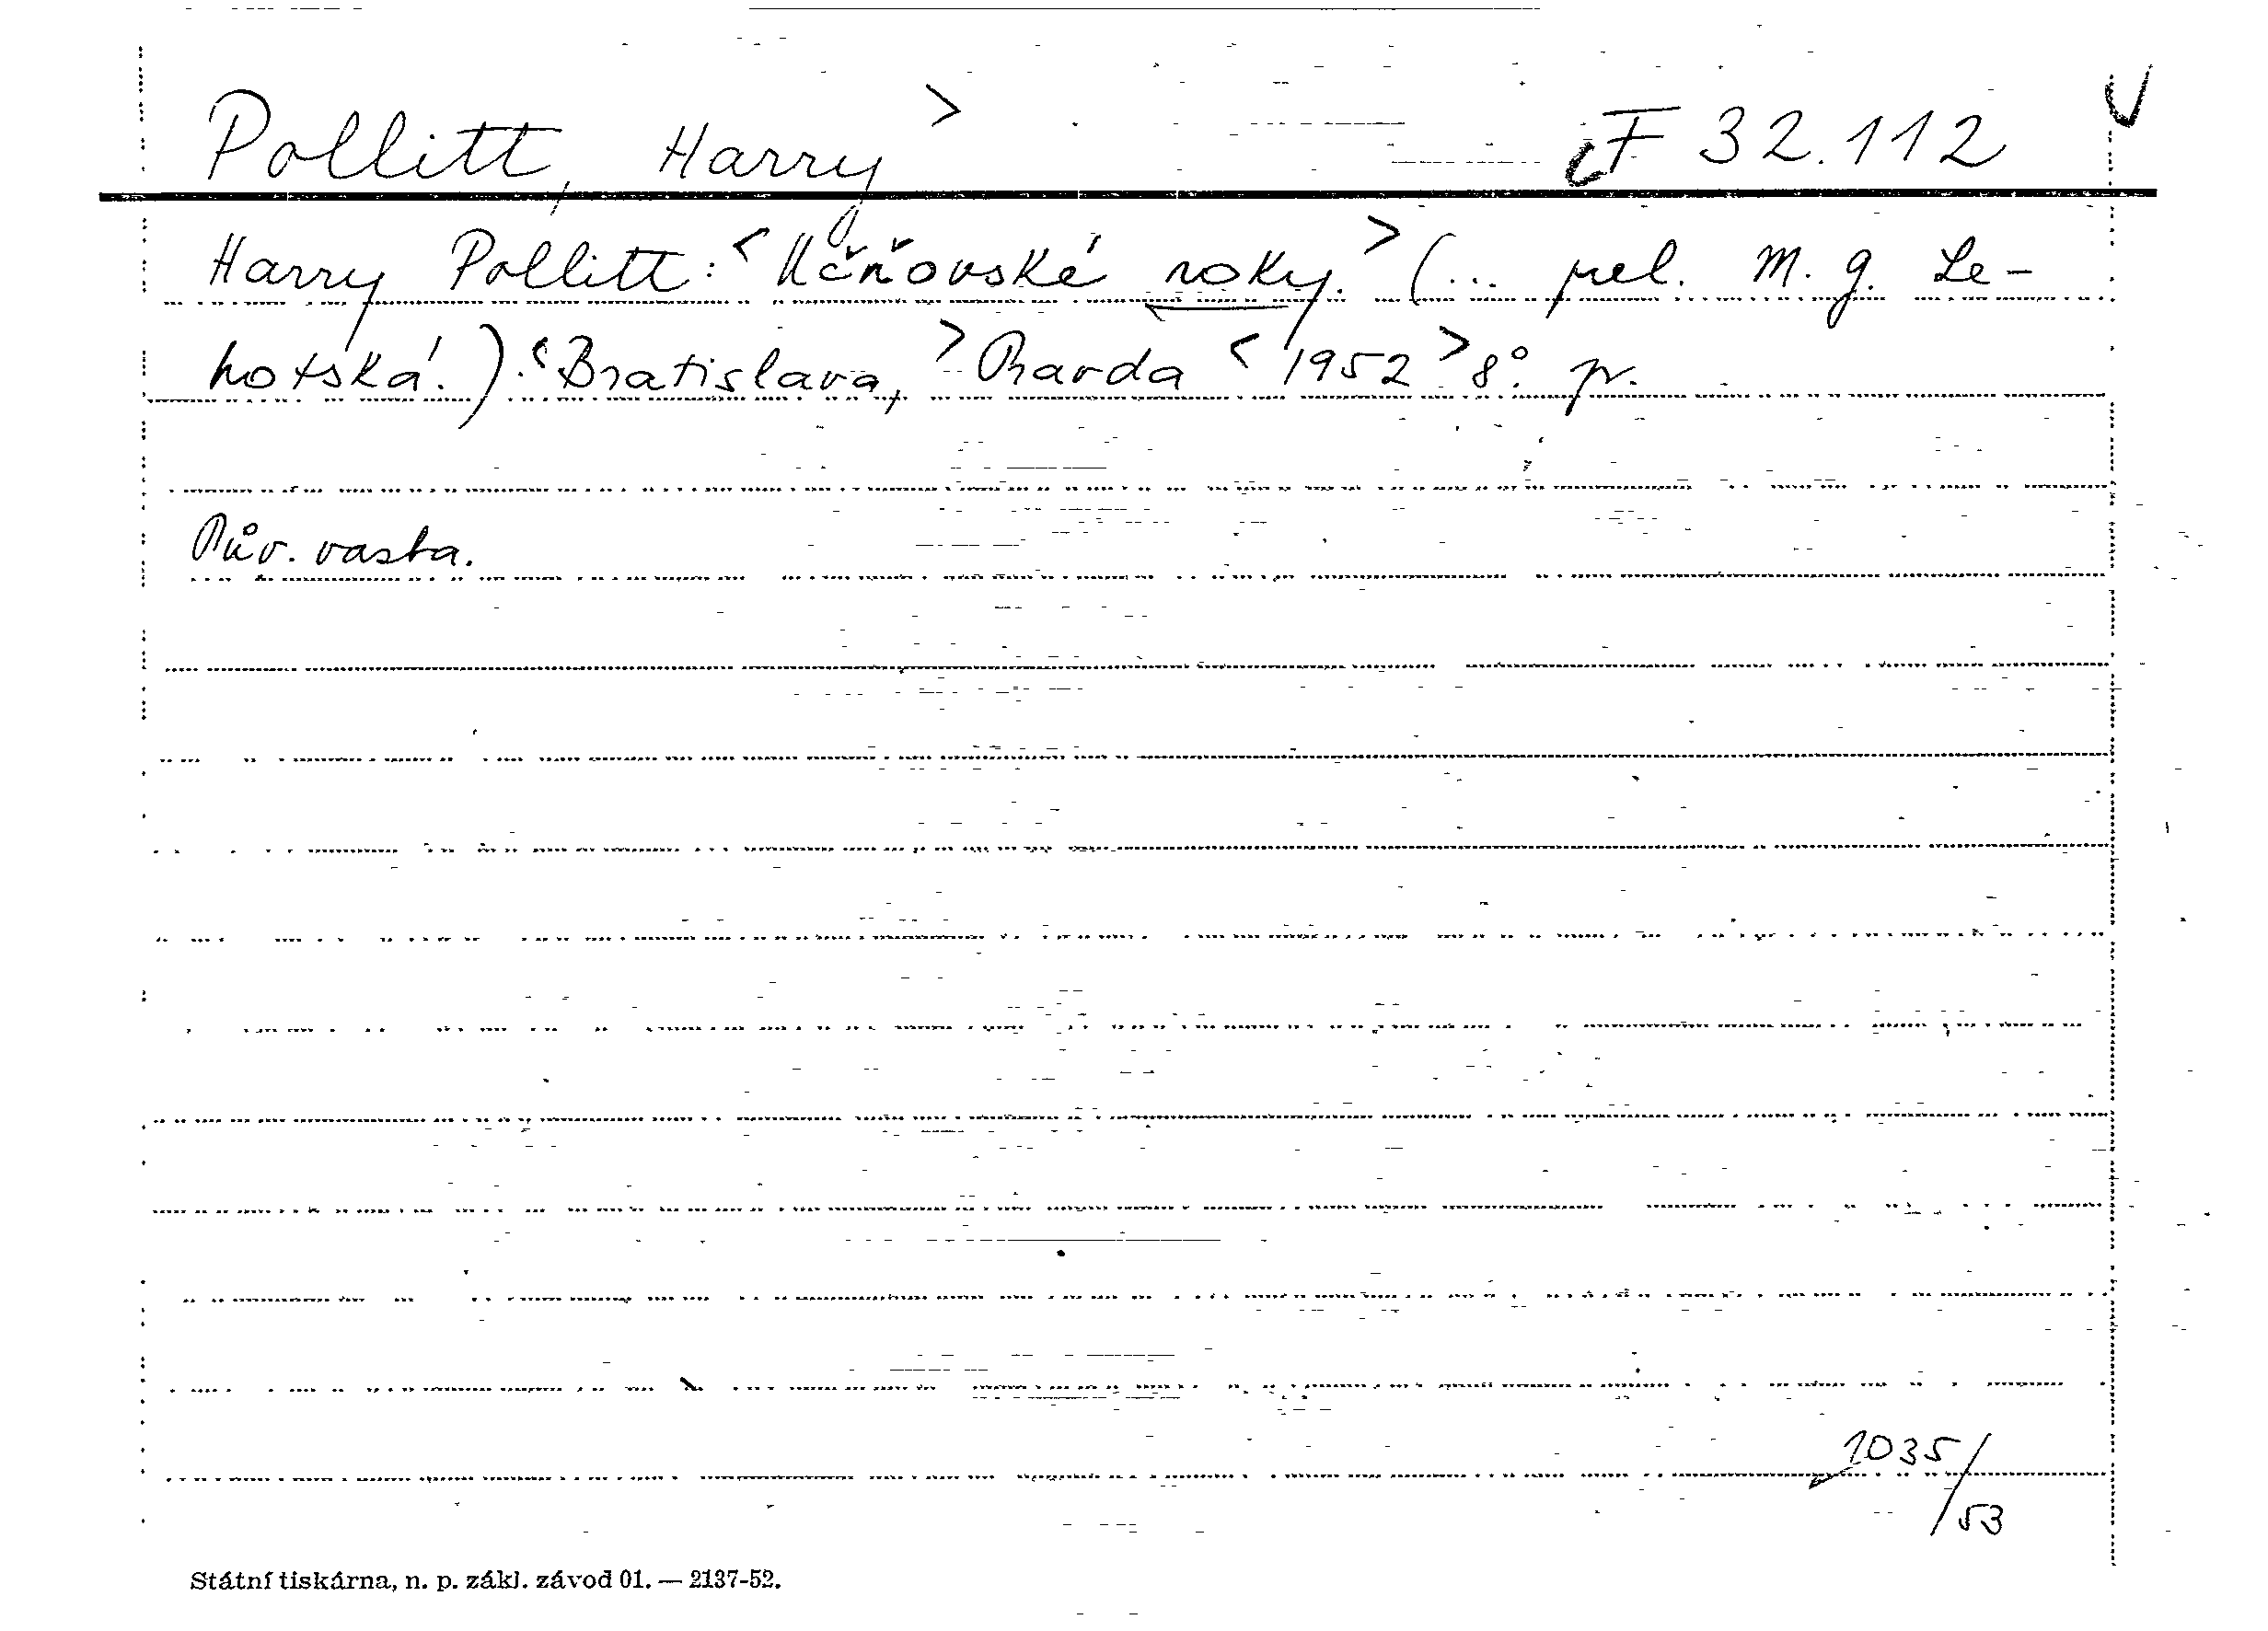 Pollitt, Harry > F 32.112
Harry Pollitt: <Učňovské roky.> (... prel. M. G. Le-
hotská.) <Bratislava,> Pravda <1952> 8°. pv.
Pův. vazba.
1035/53
Státní tiskárna, n. p. zákl. závod 01. — 2137-52.